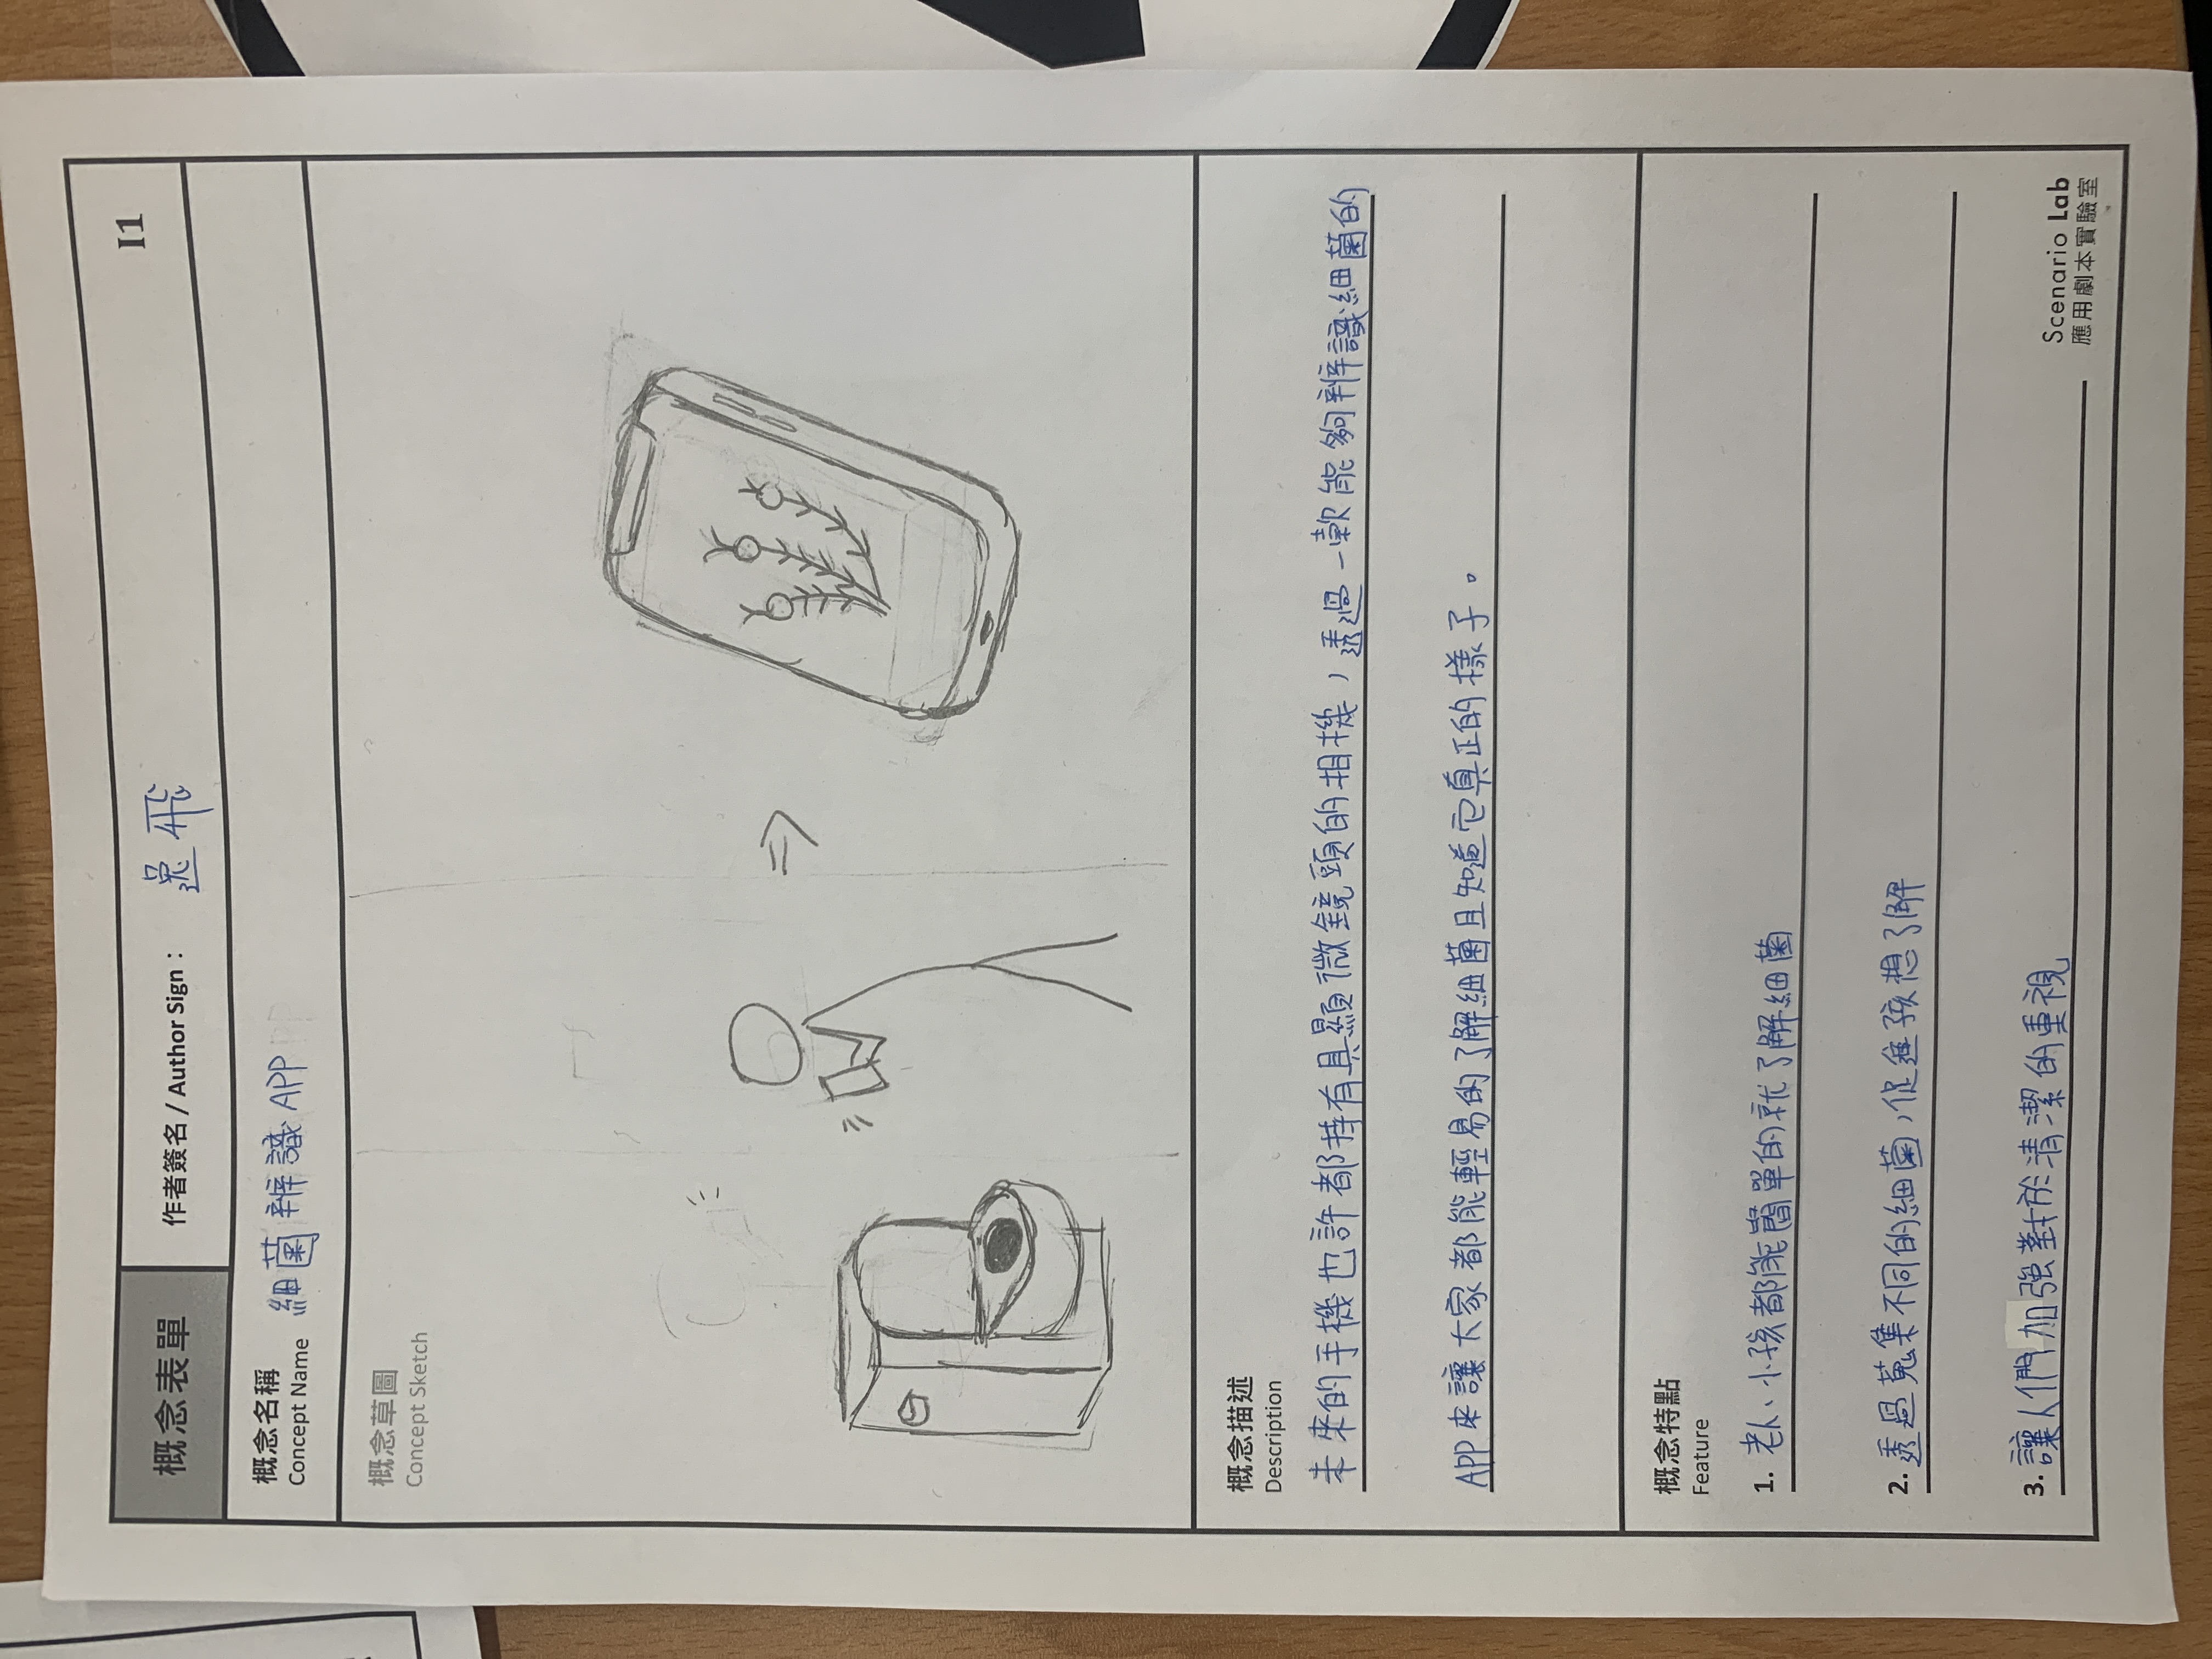 I1
概念表單
作者簽名 / Author Sign： 逸飛
概念名稱
Concept Name 細菌辨識APP
概念草圖
Concept Sketch
概念描述
Description
未來的手機也許都持有具顯微鏡頭的相機，透過一款能夠辨識細菌的
APP來讓大家都能輕易的了解細菌且知道它真正的樣子。
概念特點
Feature
1. 老人、小孩都能簡單的就了解細菌
2. 透過蒐集不同的細菌，促進孩想了解
3. 讓人們加強對於清潔的重視
Scenario Lab
應用劇本實驗室